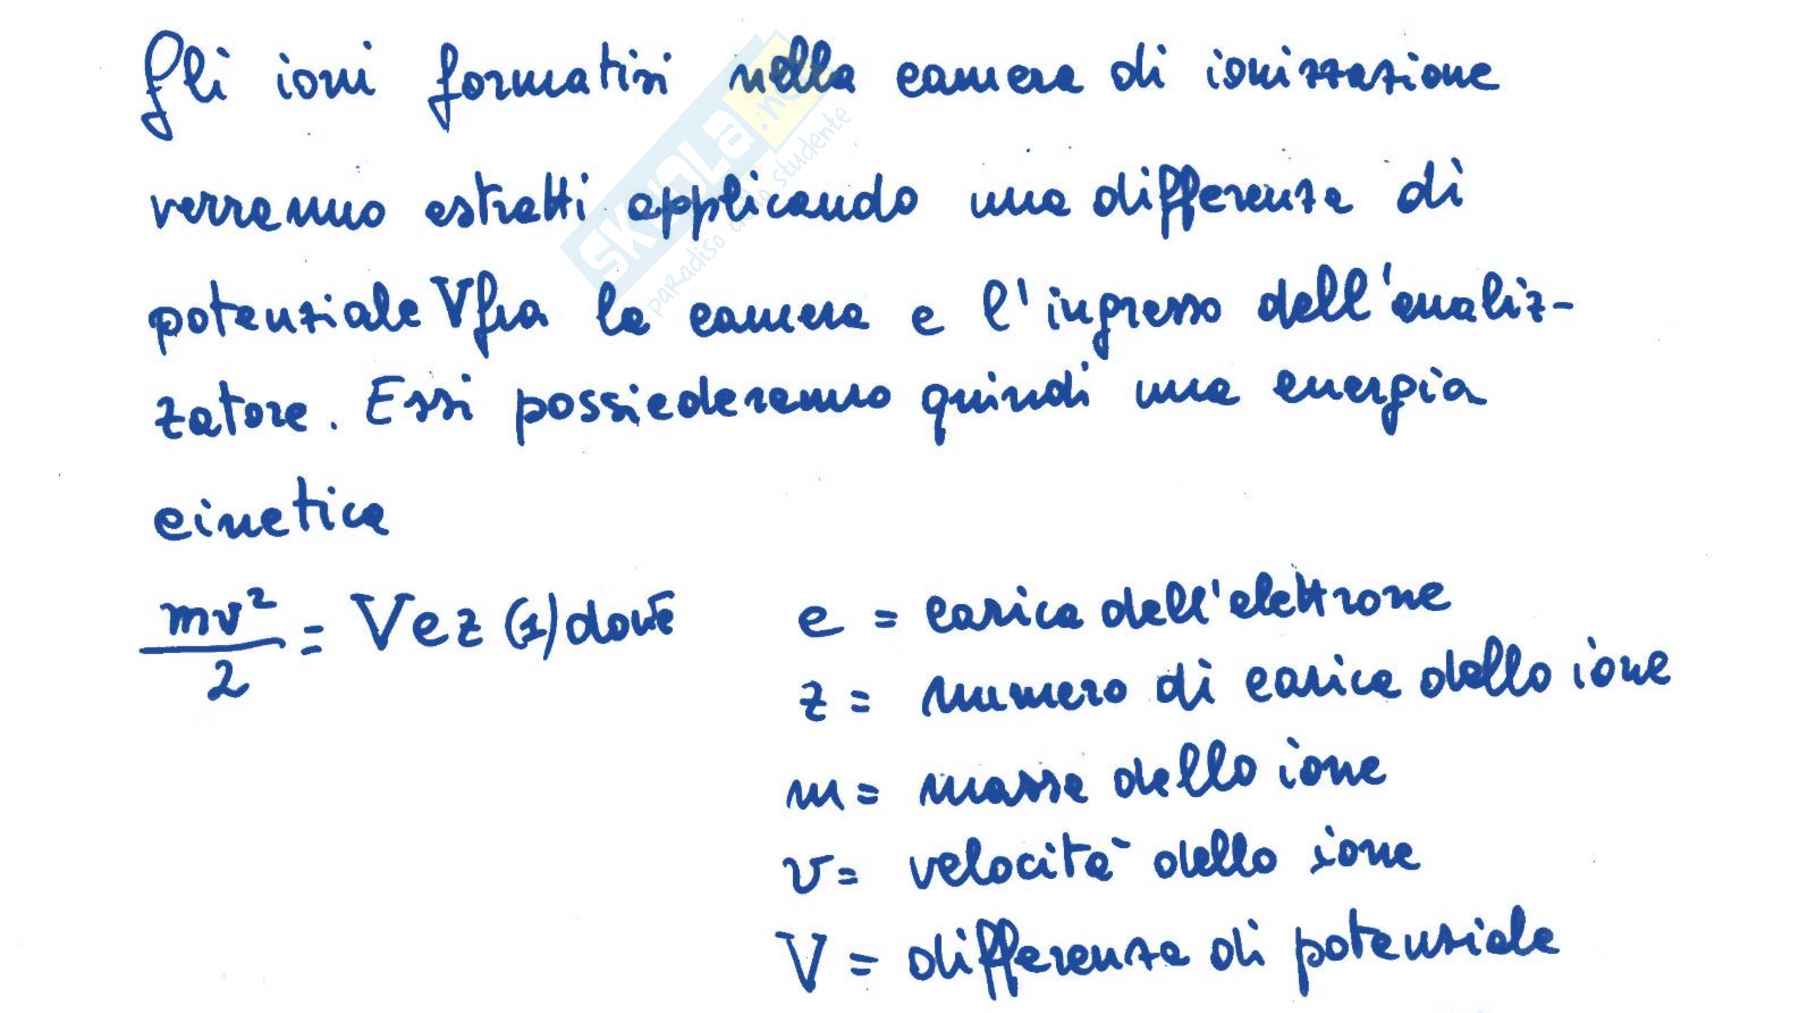 Gli ioni formatisi nella camera di ionizzazione
verranno estratti applicando una differenza di
potenziale V fra la camera e l'ingresso dell'analiz-
zatore. Essi possiederanno quindi una energia
cinetica
mv²/2 = Vez (1) dove
e = carica dell'elettrone
z = numero di carica dello ione
m = massa dello ione
v = velocità dello ione
V = differenza di potenziale
SKUOLA.net
paradiso dello studente